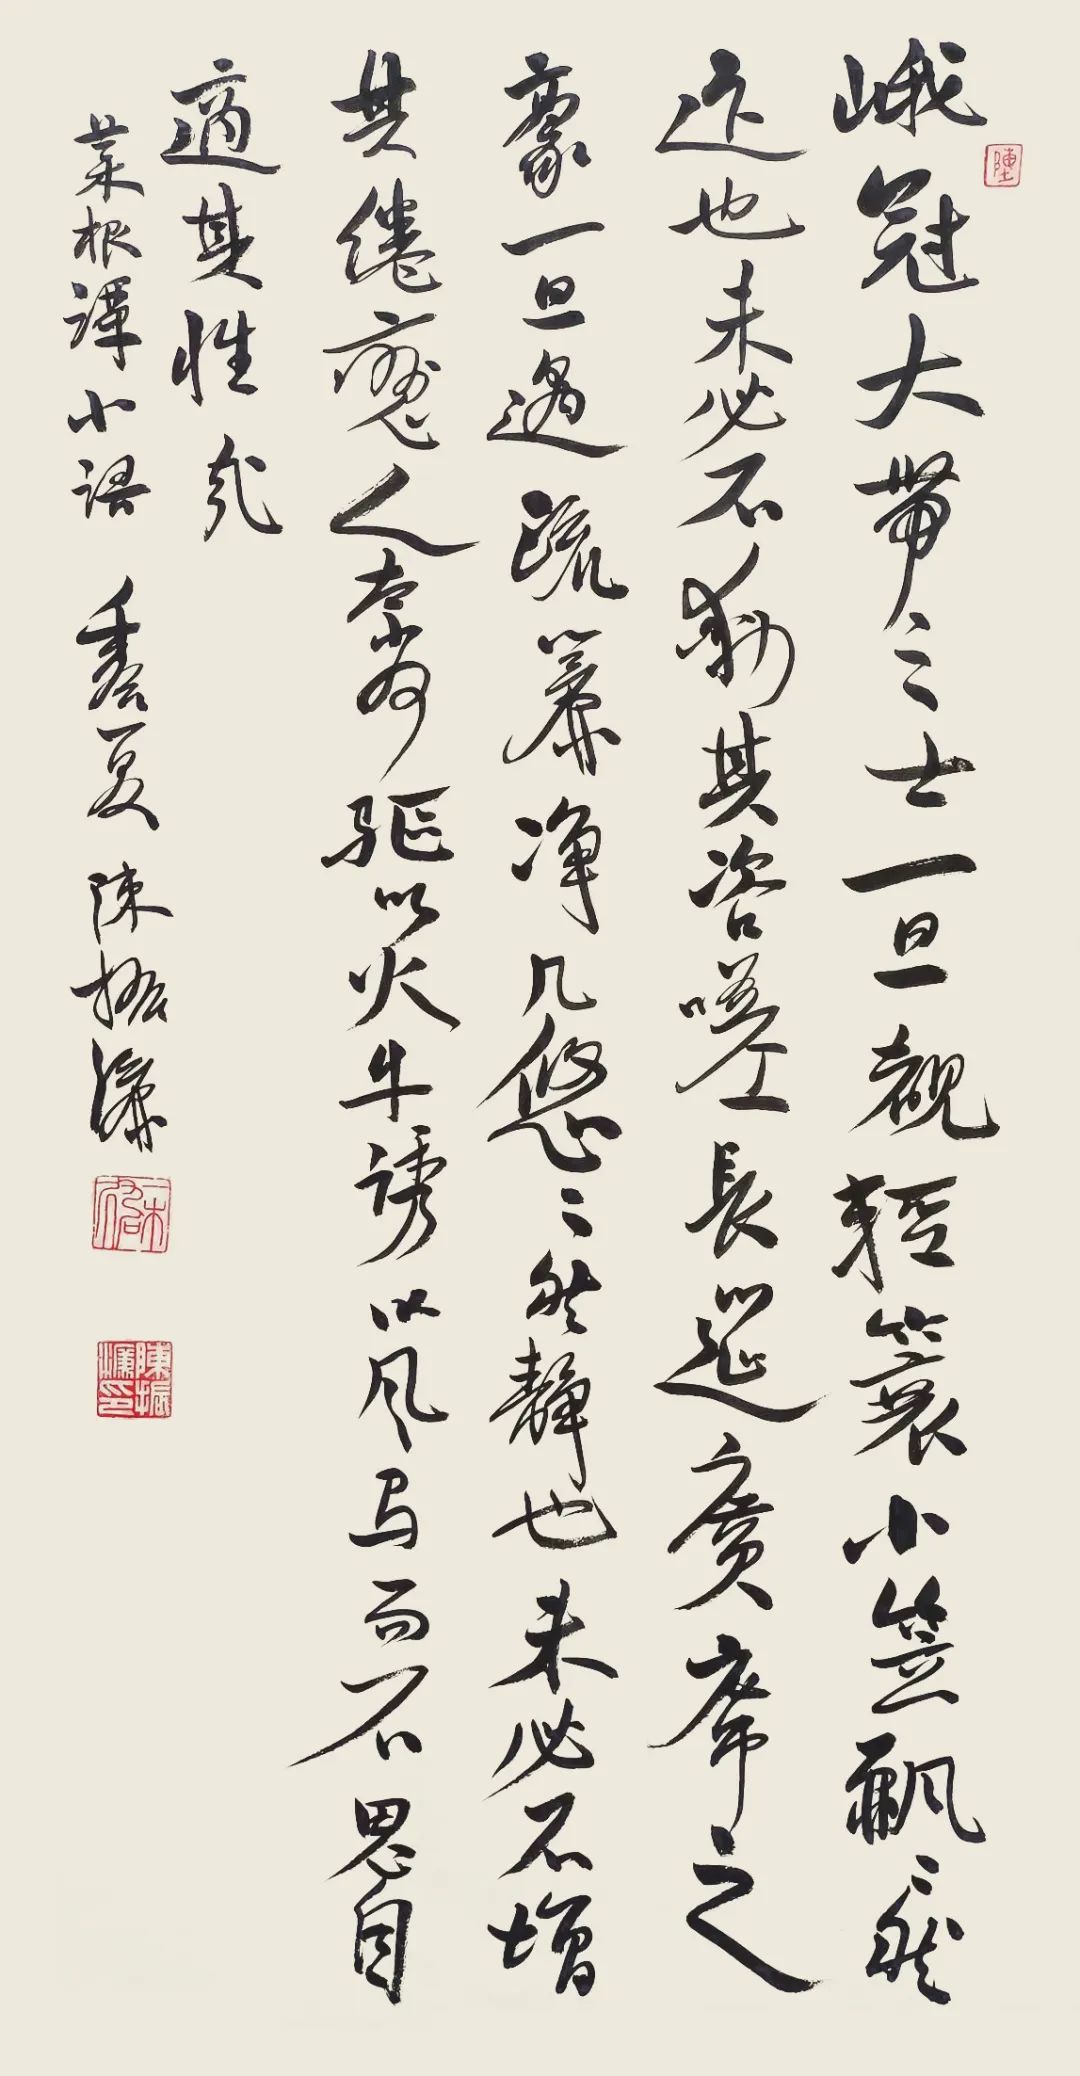 峨冠大帶之士一旦覩輕蓑小笠飄々然
也未必不動其咨嗟長筵廣席之
豪一旦遇疏簾净几悠々然静也未必不增
其綣戀人奈何驱以火牛诱以风马而不思自
適其性哉
菜根譚小語 夏 陳振濂
陳
陳振濂印